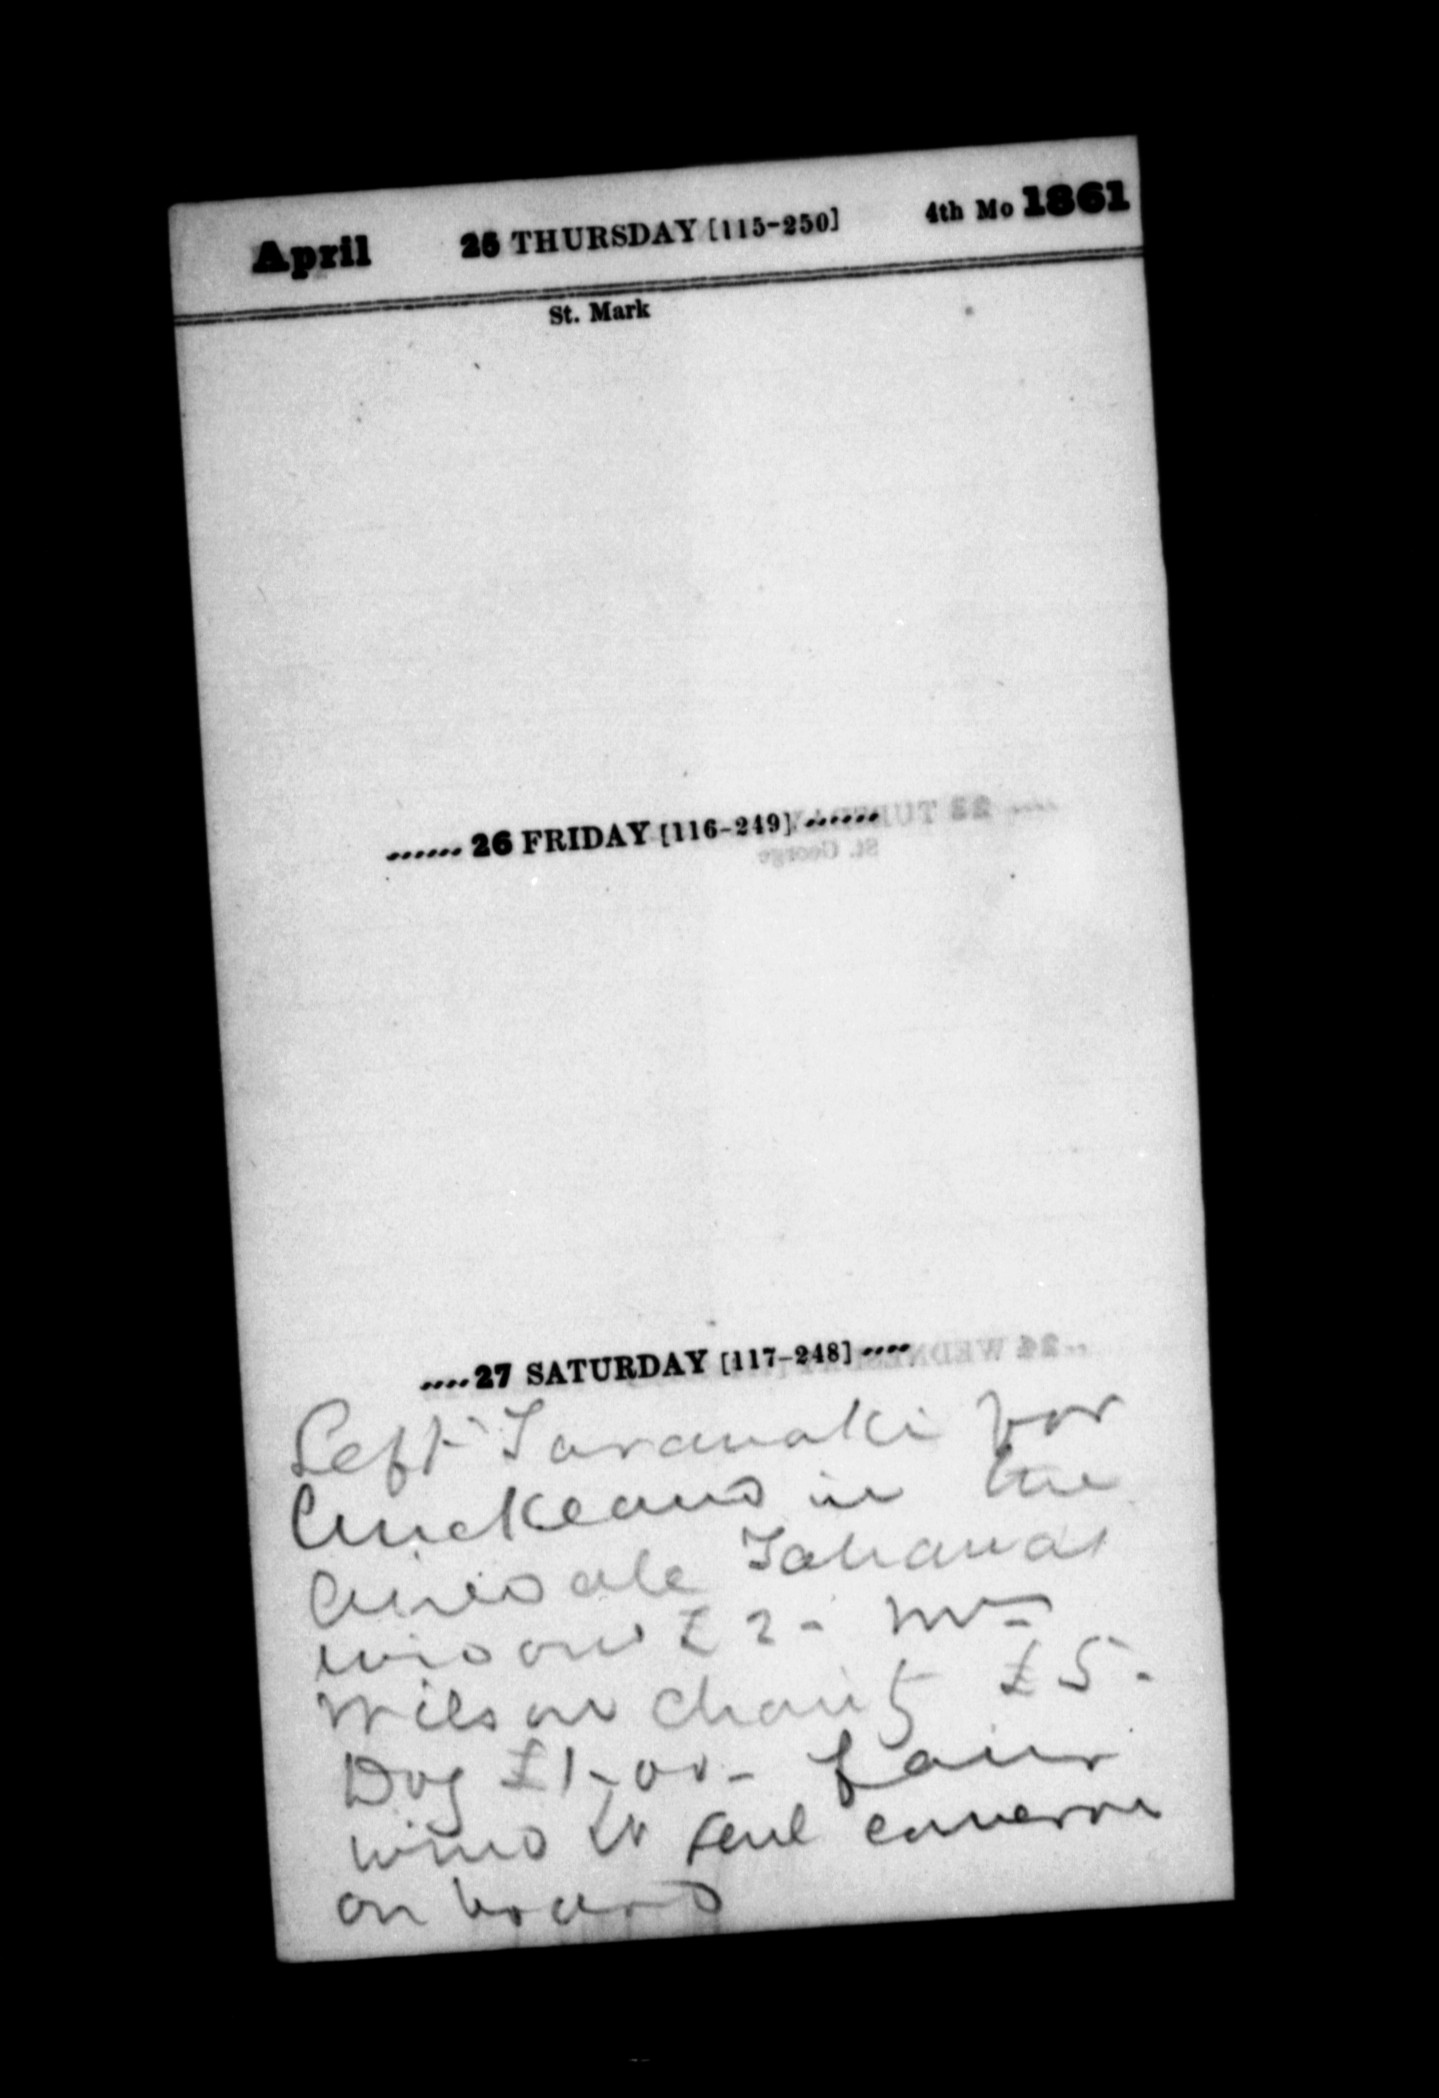 April 25 THURSDAY [115-250] 4th Mo 1861
St. Mark
26 FRIDAY [116-249]
27 SATURDAY [117-248]
Left Taranaki for
Auckland in the
Airedale
£2 - Mrs
Wilson charity £5 -
Dog £1-0-0- fair
wind
on board